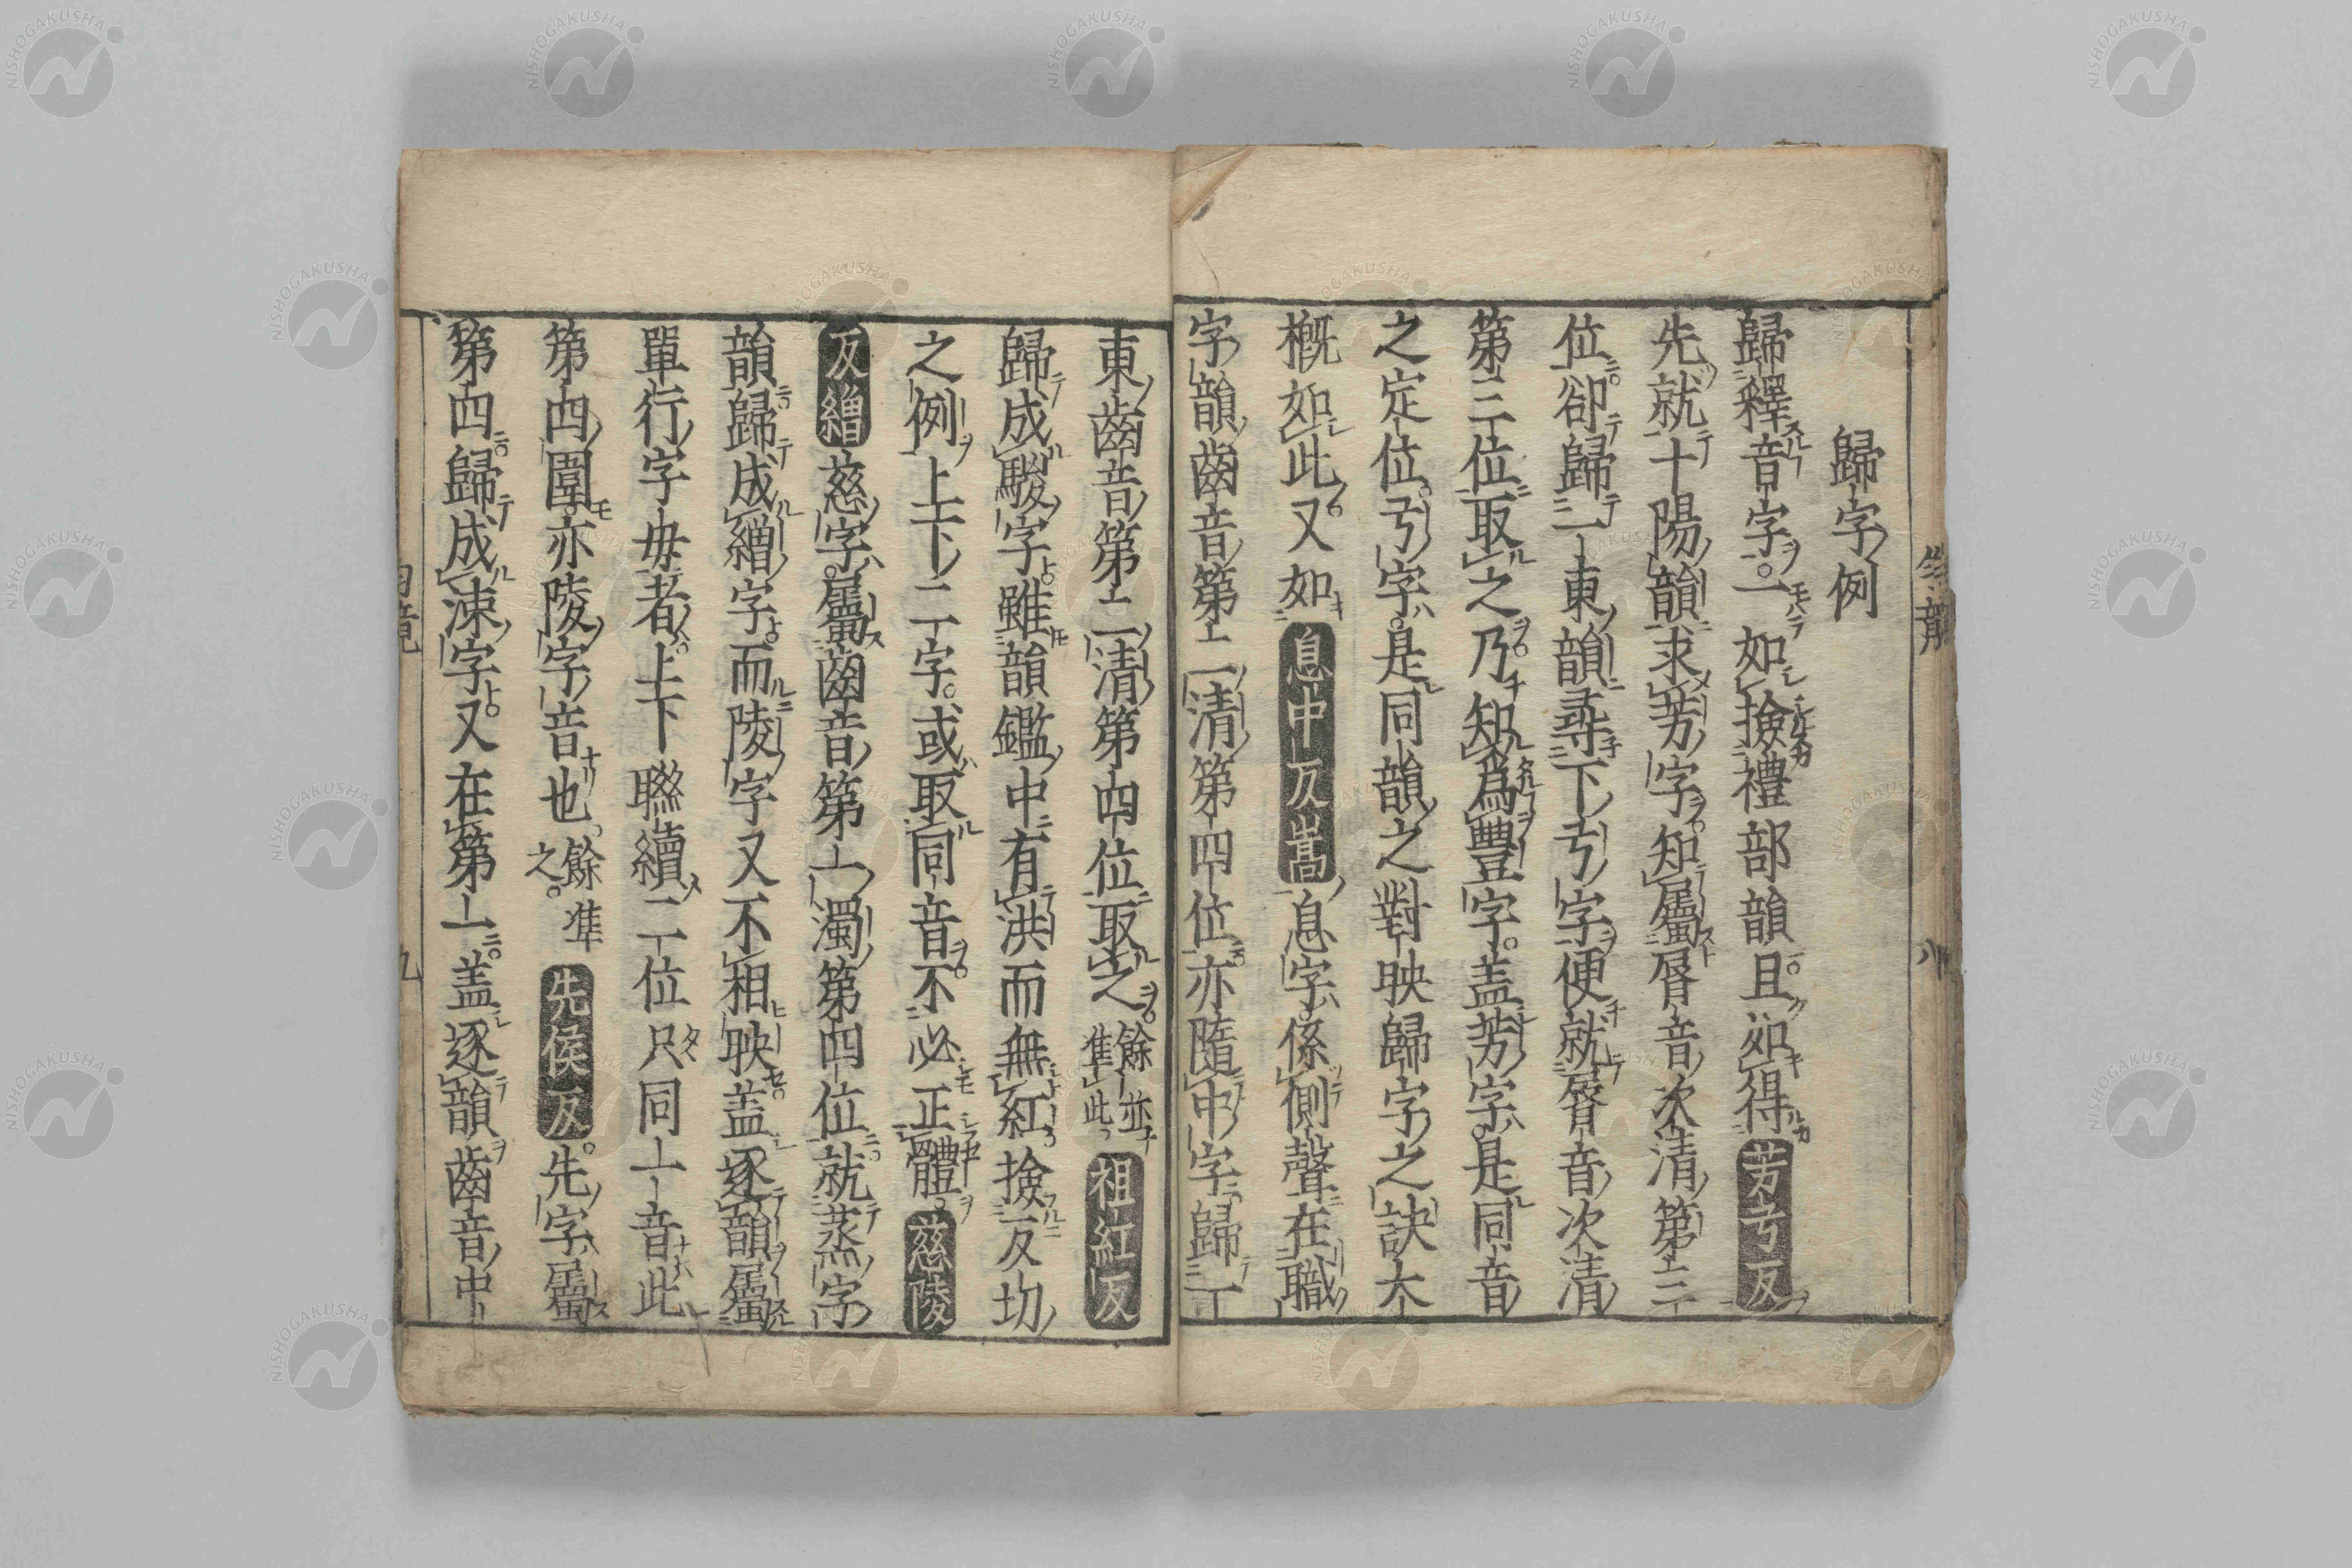 歸字例
歸釋音字一如撿禮部韻且如得芳弓反
先就十陽韻求芳字知屬脣音次清第三
位卻歸一東韻尋下弓字便就脣音次清
第三位取之乃知爲豐字盖芳字是同音
之定位弓字是同韻之對映歸字之訣大
槪如此又如息中反嵩息字係側聲在職
字韻齒音第二清第四位亦隨中字歸一
東齒音第二清第四位取之餘並準此祖紅反
歸成騣字雖韻鑑中有洪而無紅撿反切
之例上下二字或取同音不必正體慈陵
反繒慈字屬齒音第一濁第四位就蒸字
韻歸成繒字而陵字又不相映盖逐韻屬
單行字母者上下聯續二位只同一音此
第四圍亦陵字音也餘準之先侯反先字屬
第四歸成涑字又在第一盖逐韻齒音中
八
九
NISHOGAKUSHA